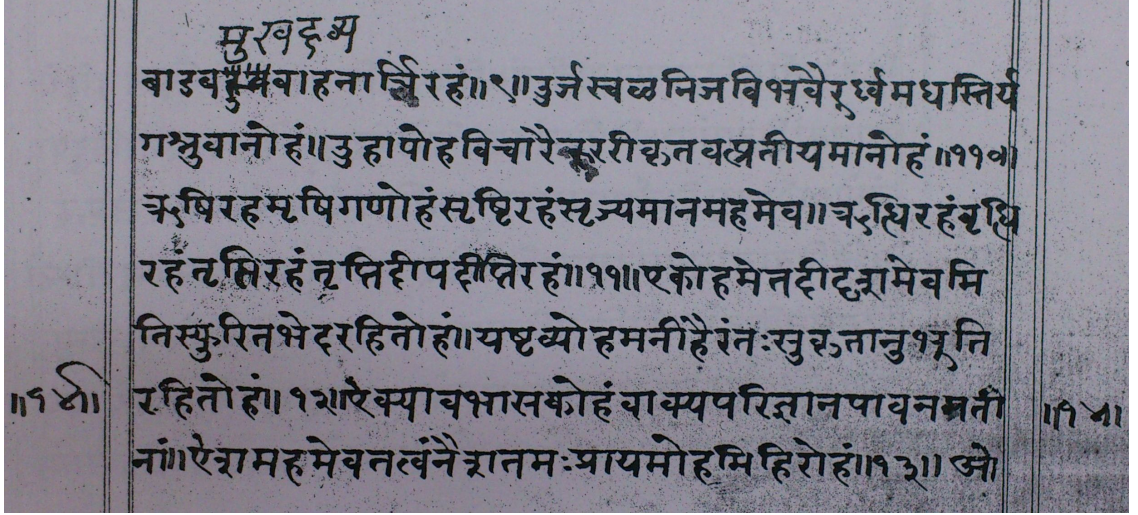 मुखद्रव्य
वाडवहव्यवाहनार्चिरहं॥९॥उर्जस्वळनिजविभवैरुर्ध्वमधस्तिर्य
गश्नुवानोहं॥उहापोहविचारैरुररीकृतवत्प्रतीयमानोहं॥११०॥
ऋषिरहमृषिगणोहंसृष्टिरहंसृज्यमानमहमेव॥ऋध्धिरहंवृध्धि
रहंतृप्तिरहंतृप्तिदीपदीप्तिरहं॥११॥एकोहमेतदीदृशमेवमि
तिस्फुरितभेदरहितोहं॥यष्टव्योहमनीहैरंतःसुकृतानुभूति
॥१४॥ रहितोहं॥१२॥ऐक्यावभासकोहंवाक्यपरिज्ञानपावनमती ॥१४॥
नां॥ऐशमहमेवतत्वंनैशतमःप्रायमोहमिहिरोहं॥१३॥ओ